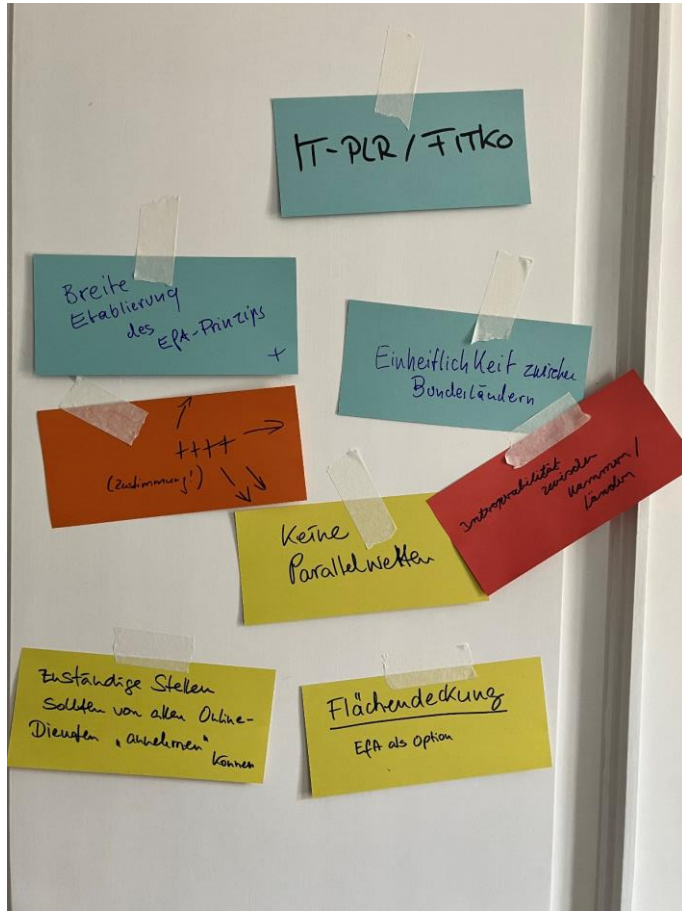 IT-PLR / FITKO
Breite
Etablierung
des EfA-Prinzips
+
Einheitlichkeit zwischen
Bundesländern
++++
(Zustimmung!)
Interoperabilität
zwischen
Kammern /
Ländern
Keine
Parallelwelten
Zuständige Stellen
sollten von allen Online-
Diensten „annehmen"
können
Flächendeckung
EfA als Option